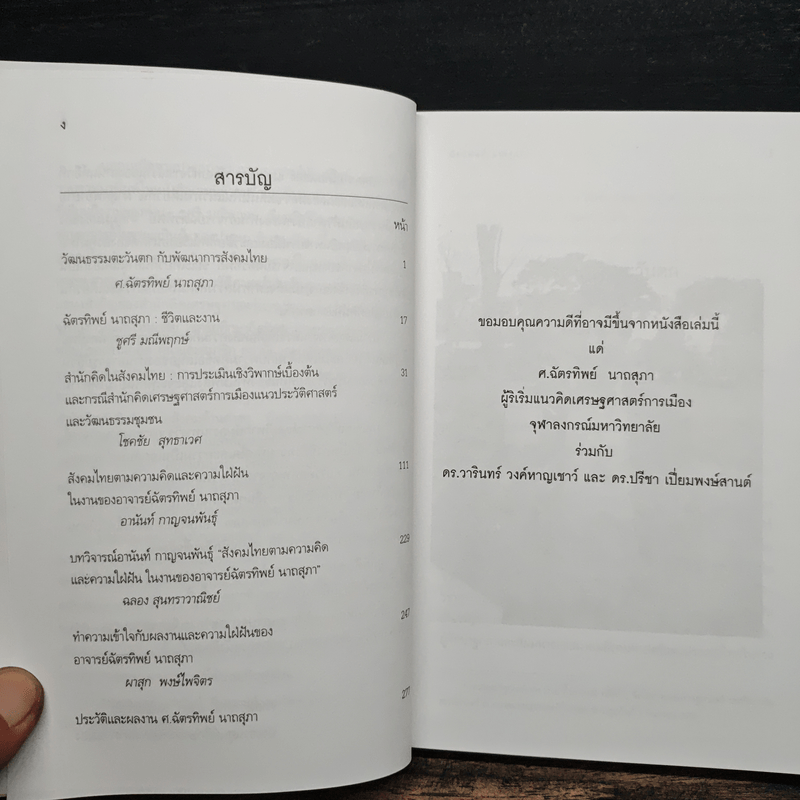 ง
สารบัญ
หน้า
วัฒนธรรมตะวันตก กับพัฒนาการสังคมไทย 1
ศ.ฉัตรทิพย์ นาถสุภา
ฉัตรทิพย์ นาถสุภา : ชีวิตและงาน 17
ชูศรี มณีพฤกษ์
สำนักคิดในสังคมไทย : การประเมินเชิงวิพากษ์เบื้องต้น 31
และกรณีสำนักคิดเศรษฐศาสตร์การเมืองแนวประวัติศาสตร์
และวัฒนธรรมชุมชน
โชคชัย สุทธาเวศ
สังคมไทยตามความคิดและความใฝ่ฝัน 111
ในงานของอาจารย์ฉัตรทิพย์ นาถสุภา
อานันท์ กาญจนพันธุ์
บทวิจารณ์อานันท์ กาญจนพันธุ์ "สังคมไทยตามความคิด 229
และความใฝ่ฝัน ในงานของอาจารย์ฉัตรทิพย์ นาถสุภา"
ฉลอง สุนทราวาณิชย์
ทำความเข้าใจกับผลงานและความใฝ่ฝันของ 247
อาจารย์ฉัตรทิพย์ นาถสุภา
ผาสุก พงษ์ไพจิตร
ประวัติและผลงาน ศ.ฉัตรทิพย์ นาถสุภา 277
ขอมอบคุณความดีที่อาจมีขึ้นจากหนังสือเล่มนี้
แด่
ศ.ฉัตรทิพย์ นาถสุภา
ผู้ริเริ่มแนวคิดเศรษฐศาสตร์การเมือง
จุฬาลงกรณ์มหาวิทยาลัย
ร่วมกับ
ดร.วารินทร์ วงค์หาญเชาว์ และ ดร.ปรีชา เปี่ยมพงษ์สานต์